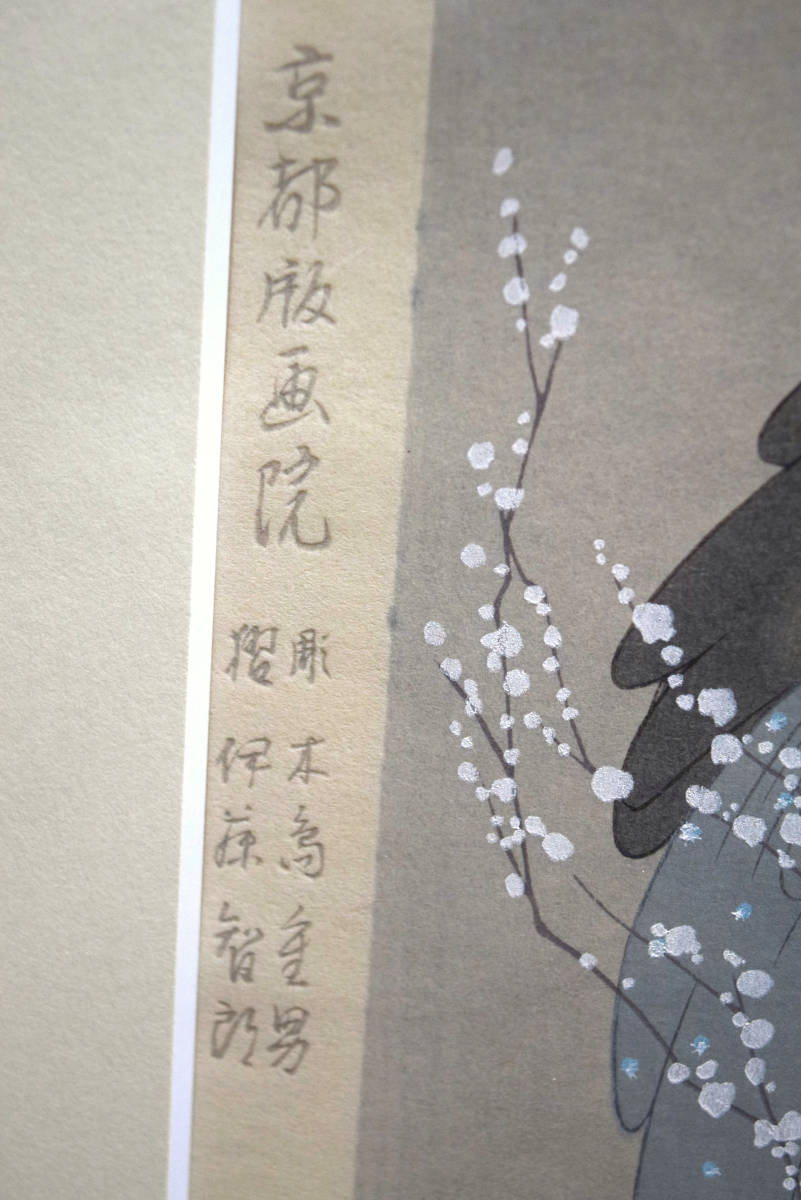 京都版画院
彫 木高重男
摺 伊藤智郎